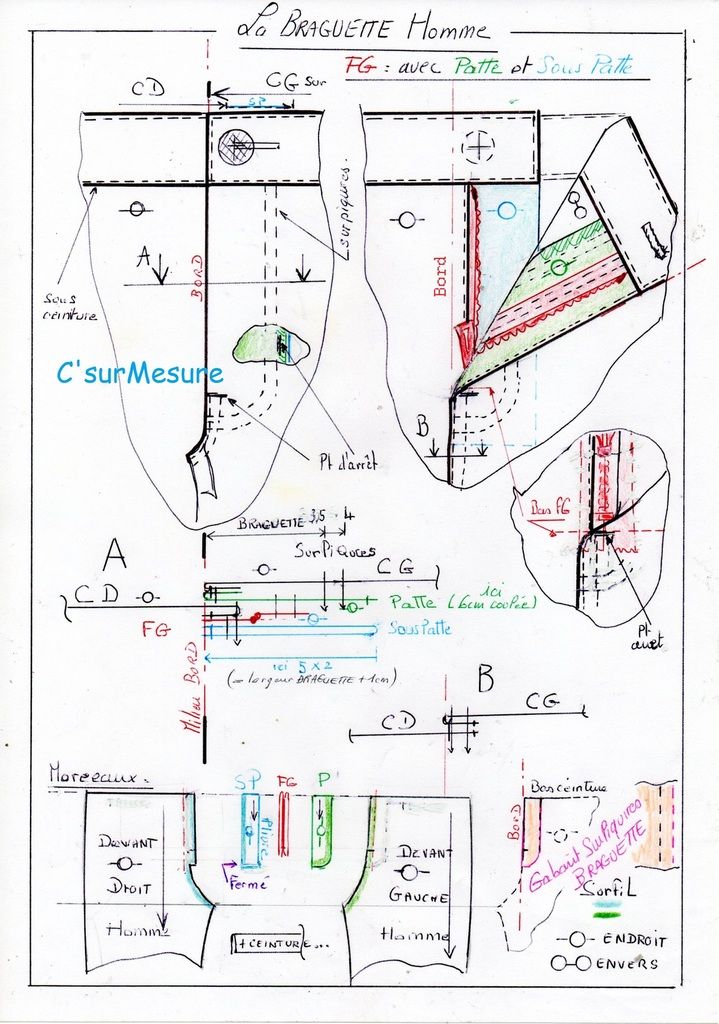 La BRAGUETTE Homme
FG : avec Patte et Sous Patte
CD
CG sur
SP
Surpiqures.
A
BORD
Bord
Sous
ceinture
C'surMesure
B
Pt d'arrêt
Bas FG
BRAGUETTE 3,5 4
SurPiquces
Pt
arret
A
CG
CD
ici
Patte (6cm coupée)
FG
SousPatte
ici 5 x 2
(= largeur BRAGUETTE +1cm)
Milieu BORD
B
CG
CD
Morceaux.
SP
FG
P
Bas ceinture
BORD
Pliure
DEVANT
DROIT
Homme
DEVANT
GAUCHE
Homme
Fermé
Gabarit SurPiquires
BRAGUETTE
SurfiL
+ CEINTURE...
ENDROIT
ENVERS